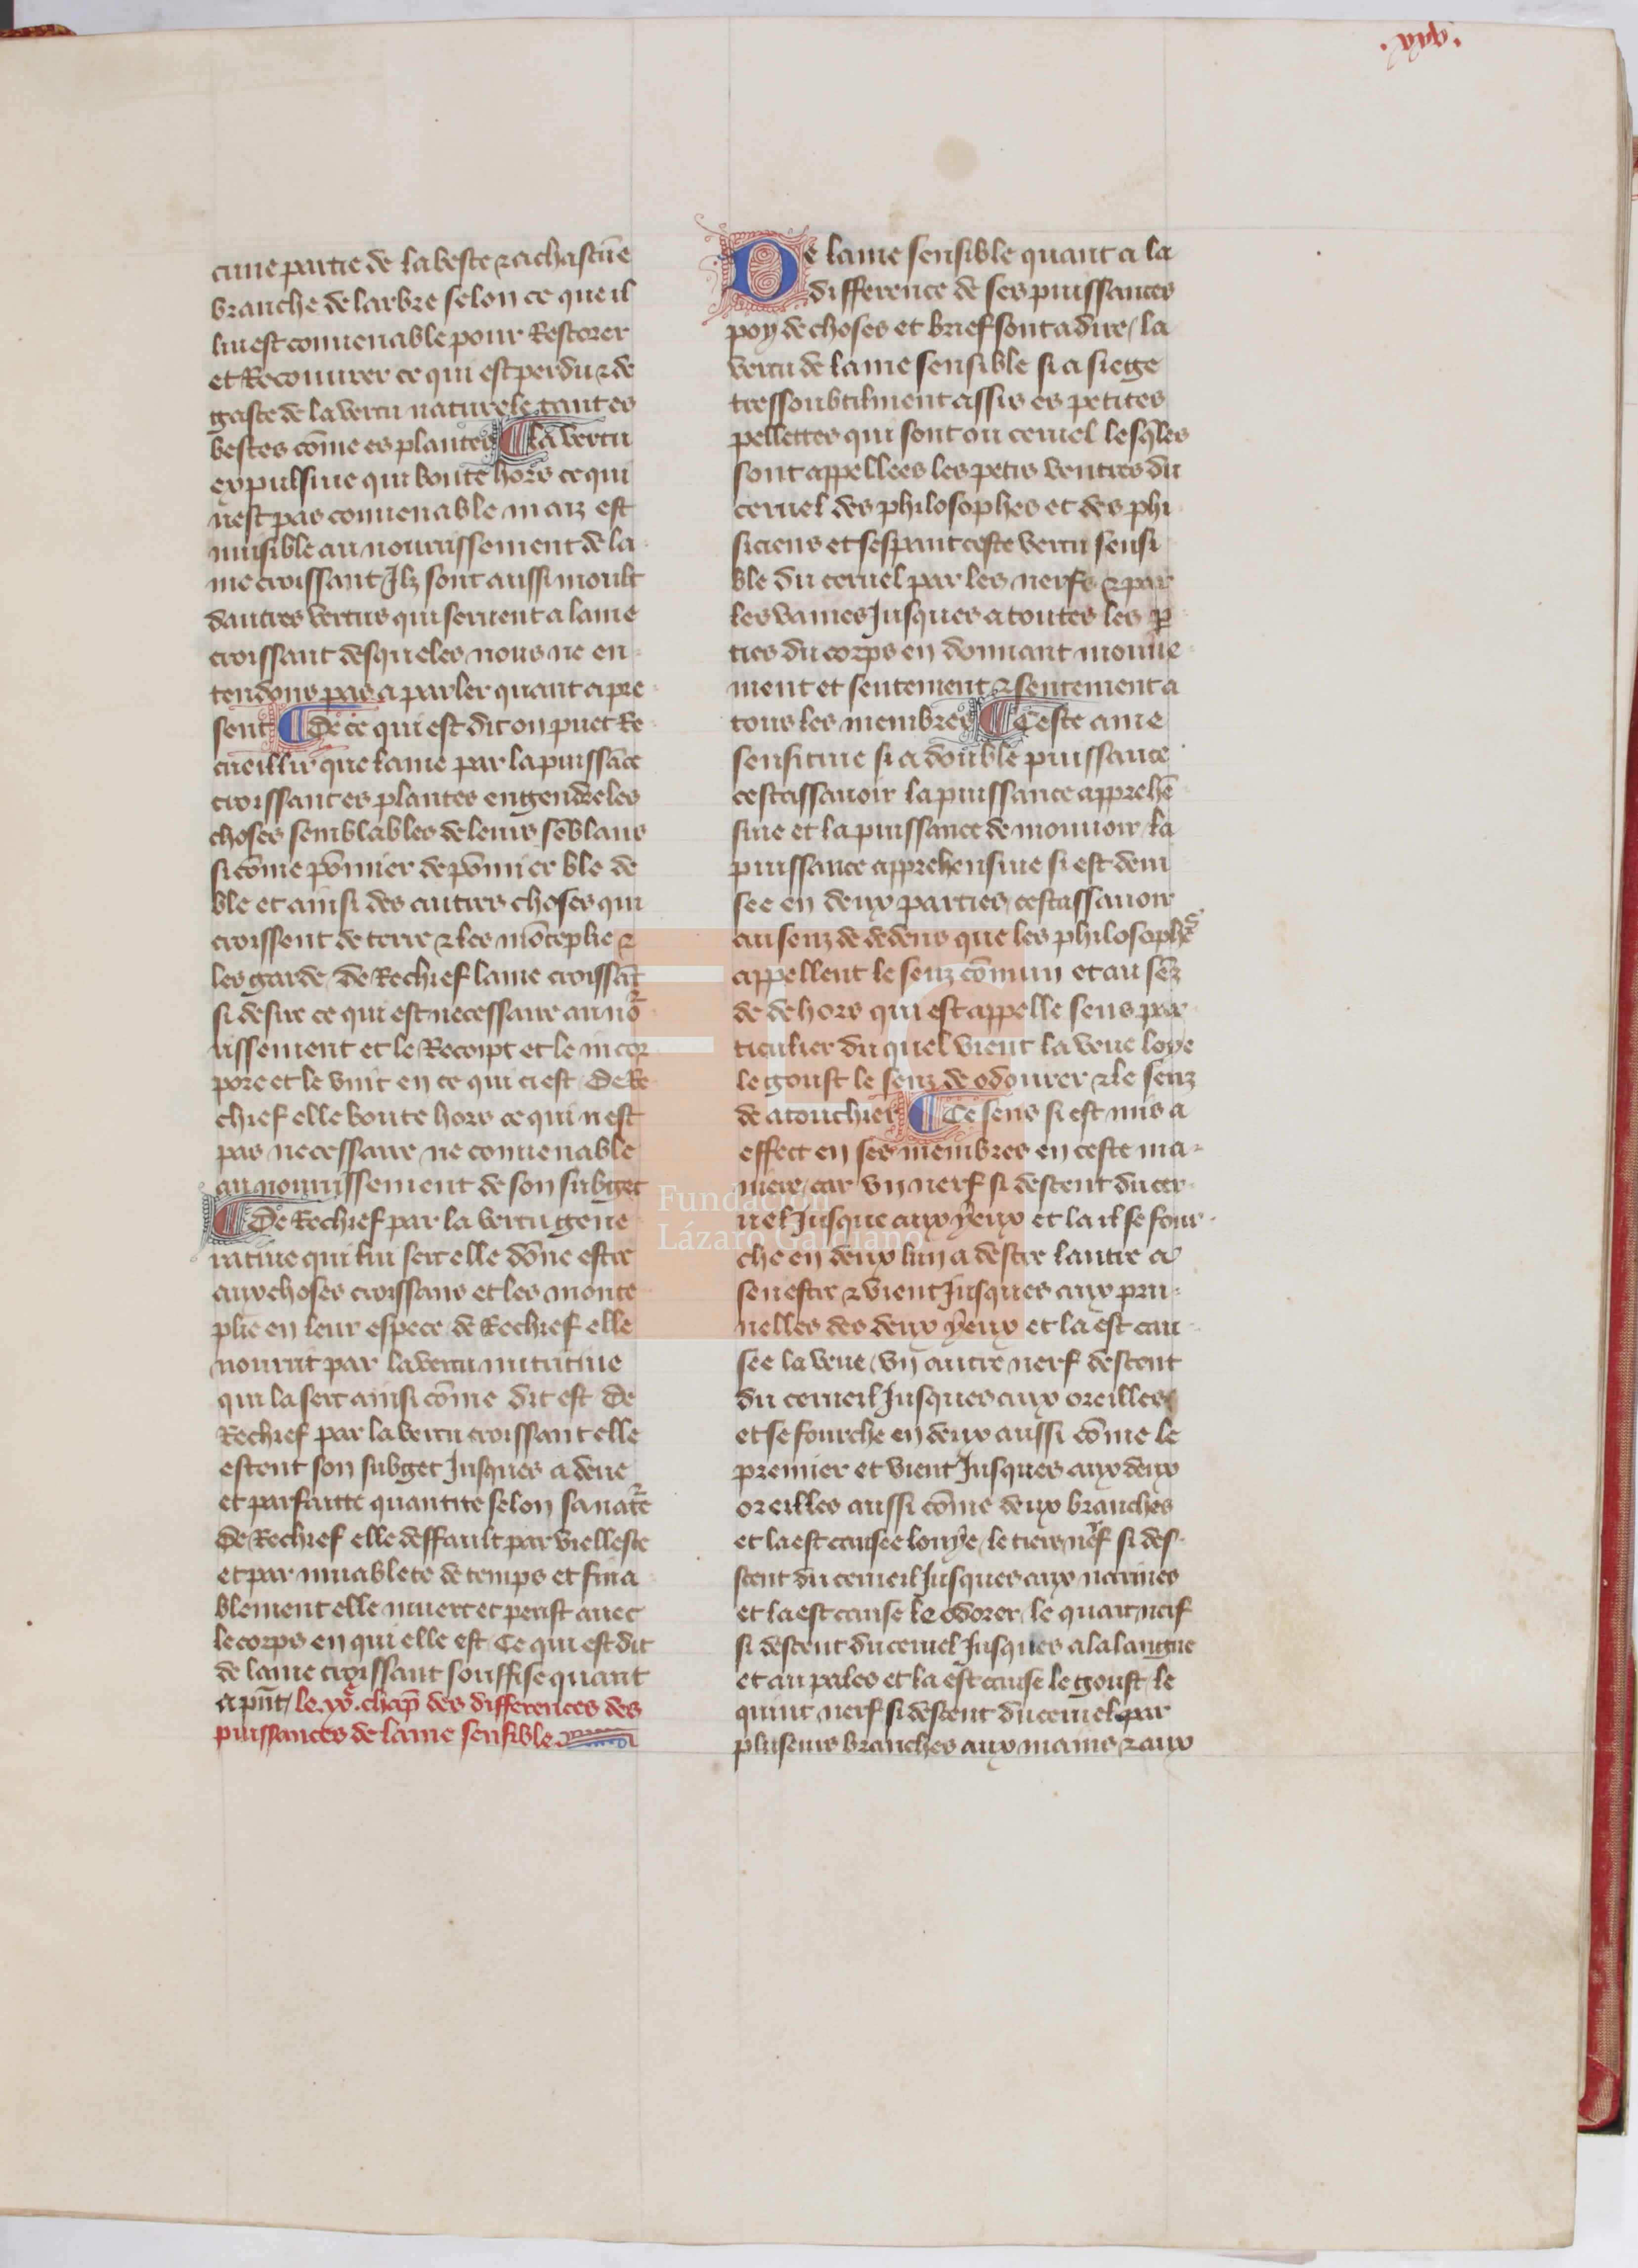 .xxix.
cune partie de la beste ⁊ a chascūe
branche de larbre selon ce que il
lui est conuenable pour Restorer
et Recouurer ce qui est perdu ⁊ de
gaste de la vertu naturele tant es
bestes cōme es plantes La vertu
expulsiue qui boute hors ce qui
nest pas conuenable maiz est
nuisible au nourrissement de la
me croissant Ilz sont aussi moult
dautres vertus qui seruent a lame
croissant desqueles nous ne en
tendons pas a parler quant a pre
sent De ce qui est dit on puet Re
cueillir que lame par la puissāce
croissant es plantes engendre les
choses semblables de leurs sēblans
si cōme pōmier de pōmier ble de
ble et ainsi des autres choses qui
croissent de terre ⁊ les mōteplie ⁊
les garde / de Rechief lame croissāt
si desire ce qui est necessaire au no
rissement et le Recoipt et le incor
pore et le vnit en ce qui ci est De Re
chief elle boute hors ce qui nest
pas necessaire ne conuenable
au nourrissement de son subget
De Rechief par la vertu gene
ratiue qui lui sert elle dōne estre
aux choses croissans et les monte
plie en leur espece / de Rechief elle
nourrit par la vertu nutritiue
qui la sert ainsi cōme dit est De
Rechief par la vertu croissant elle
estent son subget Jusques a deue
et parfaitte quantite selon sa natre
De Rechief elle deffault par viellesce
et par muablete de temps et fina
blement elle muert et perist auec
le corps en qui elle est Ce qui est dit
de lame croissant souffise quant
a pn̄t / le .xe. chap̄ des differences des
puissances de lame sensible
De lame sensible quant a la
difference de ses puissances
poy de choses et brief sont a dire / la
vertu de lame sensible si a siege
tressoubtilment assis es petites
pellettes qui sont ou ceruel lesq̄les
sont appellees les petis ventres du
ceruel des philosophes et des phi
siciens et sespant ceste vertu sensi
ble du ceruel par les nerfs ⁊ par
les vaines Jusques a toutes les ꝑ
ties du corps en donnant mouue
ment et sentement ⁊ sentement a
tous les membres Ceste ame
sensitiue si a double puissance
cest assauoir la puissance apprehē
siue et la puissance de mouuoir / la
puissance apprehensiue si est deui
see en deux parties / cest assauoir
au senz de dedens que les philosophes
appellent le senz cōmun et au sēz
de dehors qui est appelle sens par
ticulier du quel vient la veue loye
le goust le senz de odourer ⁊ le senz
de atouchier Ce sens si est mis a
effect en ses membres en ceste ma
niere / car vn nerf si descent du cer
uel Jusque aux yeux et la il se four
che en deux lun a destre lautre a
senestre ⁊ vient Jusques aux pru
nelles des deux yeux et la est cau
see la veue / vn autre nerf descent
du ceruel Jusques aux oreilles
et se fourche en deux aussi cōme le
premier et vient Jusques aux deux
oreilles aussi cōme deux branches
et la est causee louye / le tiers nerf si des
cent du ceruel Jusques aux narines
et la est cause le odorer / le quart nerf
si descent du ceruel Jusques a la langue
et au pales et la est cause le goust / le
quint nerf si descent du ceruel par
pluseurs branches aux mains ⁊ aux
Fundación
Lázaro Galdiano